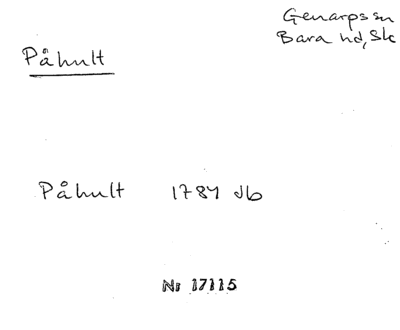 Genarps sn
Bara hd, Sk
Påhult
Påhult 1784 db
Nr 17115